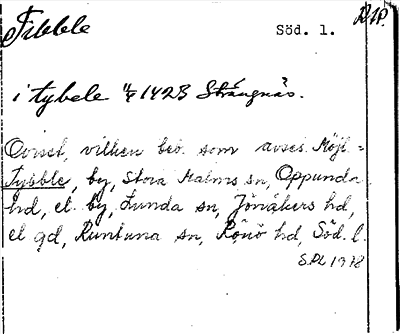 Tibble
Söd. l.
RAP.
i tybele 4/5 1423 Strängnäs.
Ovisst, vilken beb. som avses. Möjl =
Tybble, by, Stora Malms sn, Oppunda
hd, el. by, Lunda sn, Jönåkers hd,
el gd, Runtuna sn, Rönö hd, Söd. l.
SRL 1978